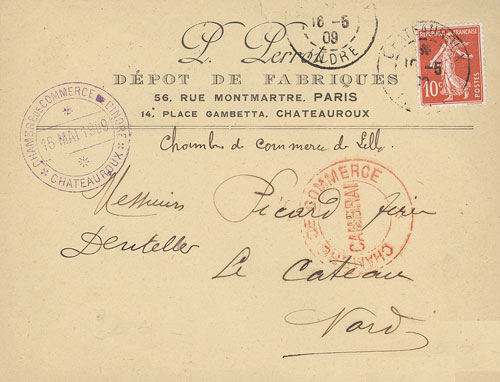 16-5
09
INDRE
P. Perron
DÉPOT DE FABRIQUES
56, RUE MONTMARTRE, PARIS
14, PLACE GAMBETTA, CHATEAUROUX
RÉPUBLIQUE FRANÇAISE
10c
POSTES
CHAMBRE DE COMMERCE DE L'INDRE
16 MAI 1909
CHATEAUROUX
Chambre de commerce de Lille
CHAMBRE DE COMMERCE
CAMBRAI
Messieurs Picard frères
Dentelles
Le Cateau
Nord